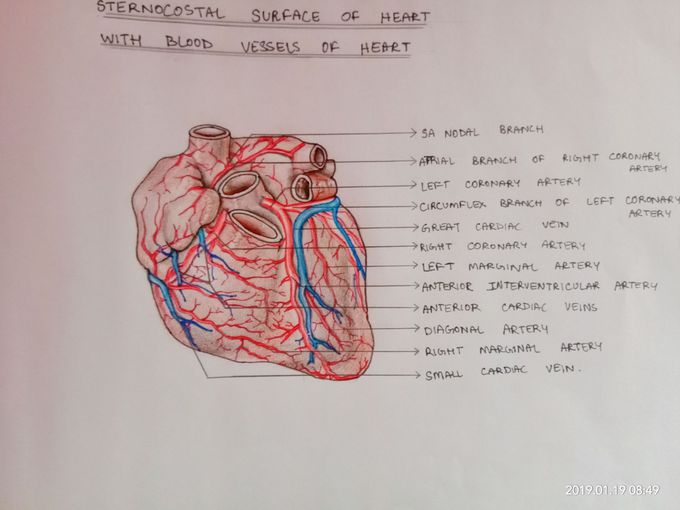 STERNOCOSTAL SURFACE OF HEART
WITH BLOOD VESSELS OF HEART
SA NODAL BRANCH
ATRIAL BRANCH OF RIGHT CORONARY
ARTERY
LEFT CORONARY ARTERY
CIRCUMFLEX BRANCH OF LEFT CORONARY
ARTERY
GREAT CARDIAC VEIN
RIGHT CORONARY ARTERY
LEFT MARGINAL ARTERY
ANTERIOR INTERVENTRICULAR ARTERY
ANTERIOR CARDIAC VEINS
DIAGONAL ARTERY
RIGHT MARGINAL ARTERY
SMALL CARDIAC VEIN.
2019.01.19 08:49